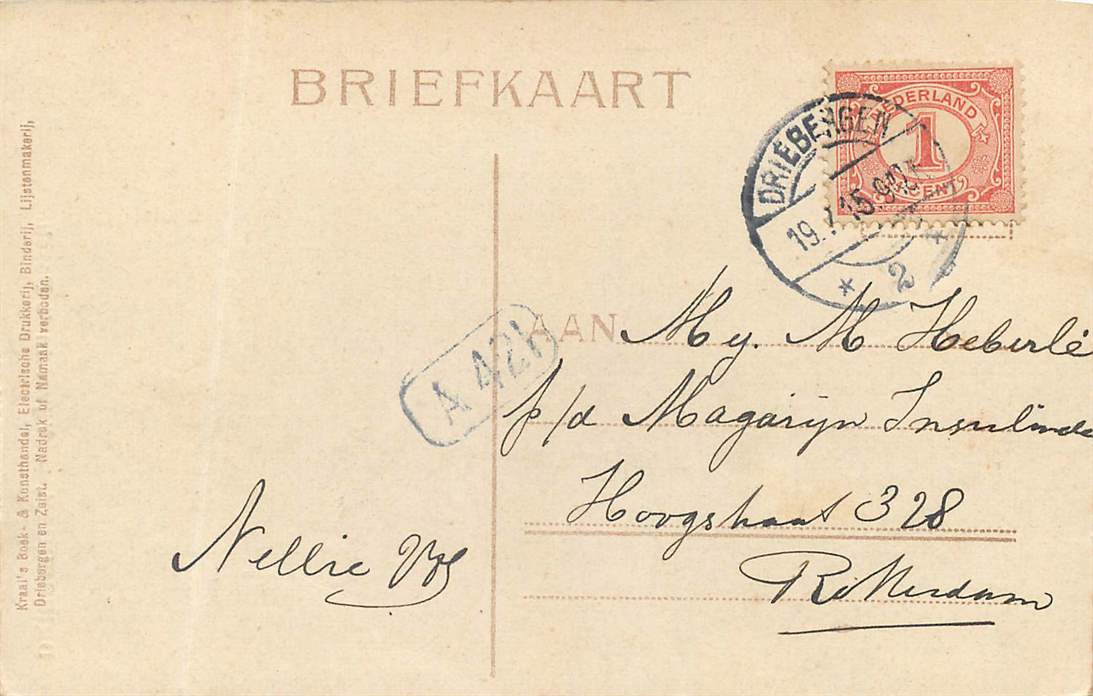 BRIEFKAART
NEDERLAND
1
CENT
DRIEBERGEN
19. 15 9
2
A 42
AAN
My. M Heberlé
p/d Magazijn Insulinde
Hoogstraat 328
Rotterdam
Nellie
Kraal's Boek- & Kunsthandel, Electrische Drukkerij, Binderij, Lijstenmakerij,
Driebergen en Zeist. Nadruk of Namaak verboden.